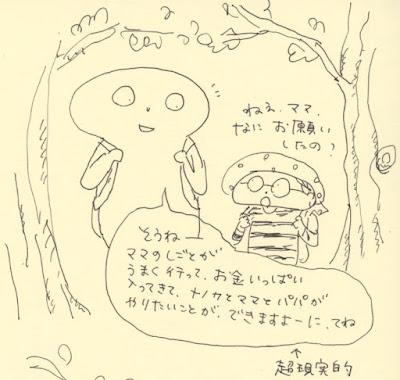 ねえ、ママ、
なにお願い
したの？
そうねー
ママのしごとが
うまく行って、お金いっぱい
入ってきて、ナノカとママとパパが
やりたいことが、できますよーに、てね
↑
超現実的